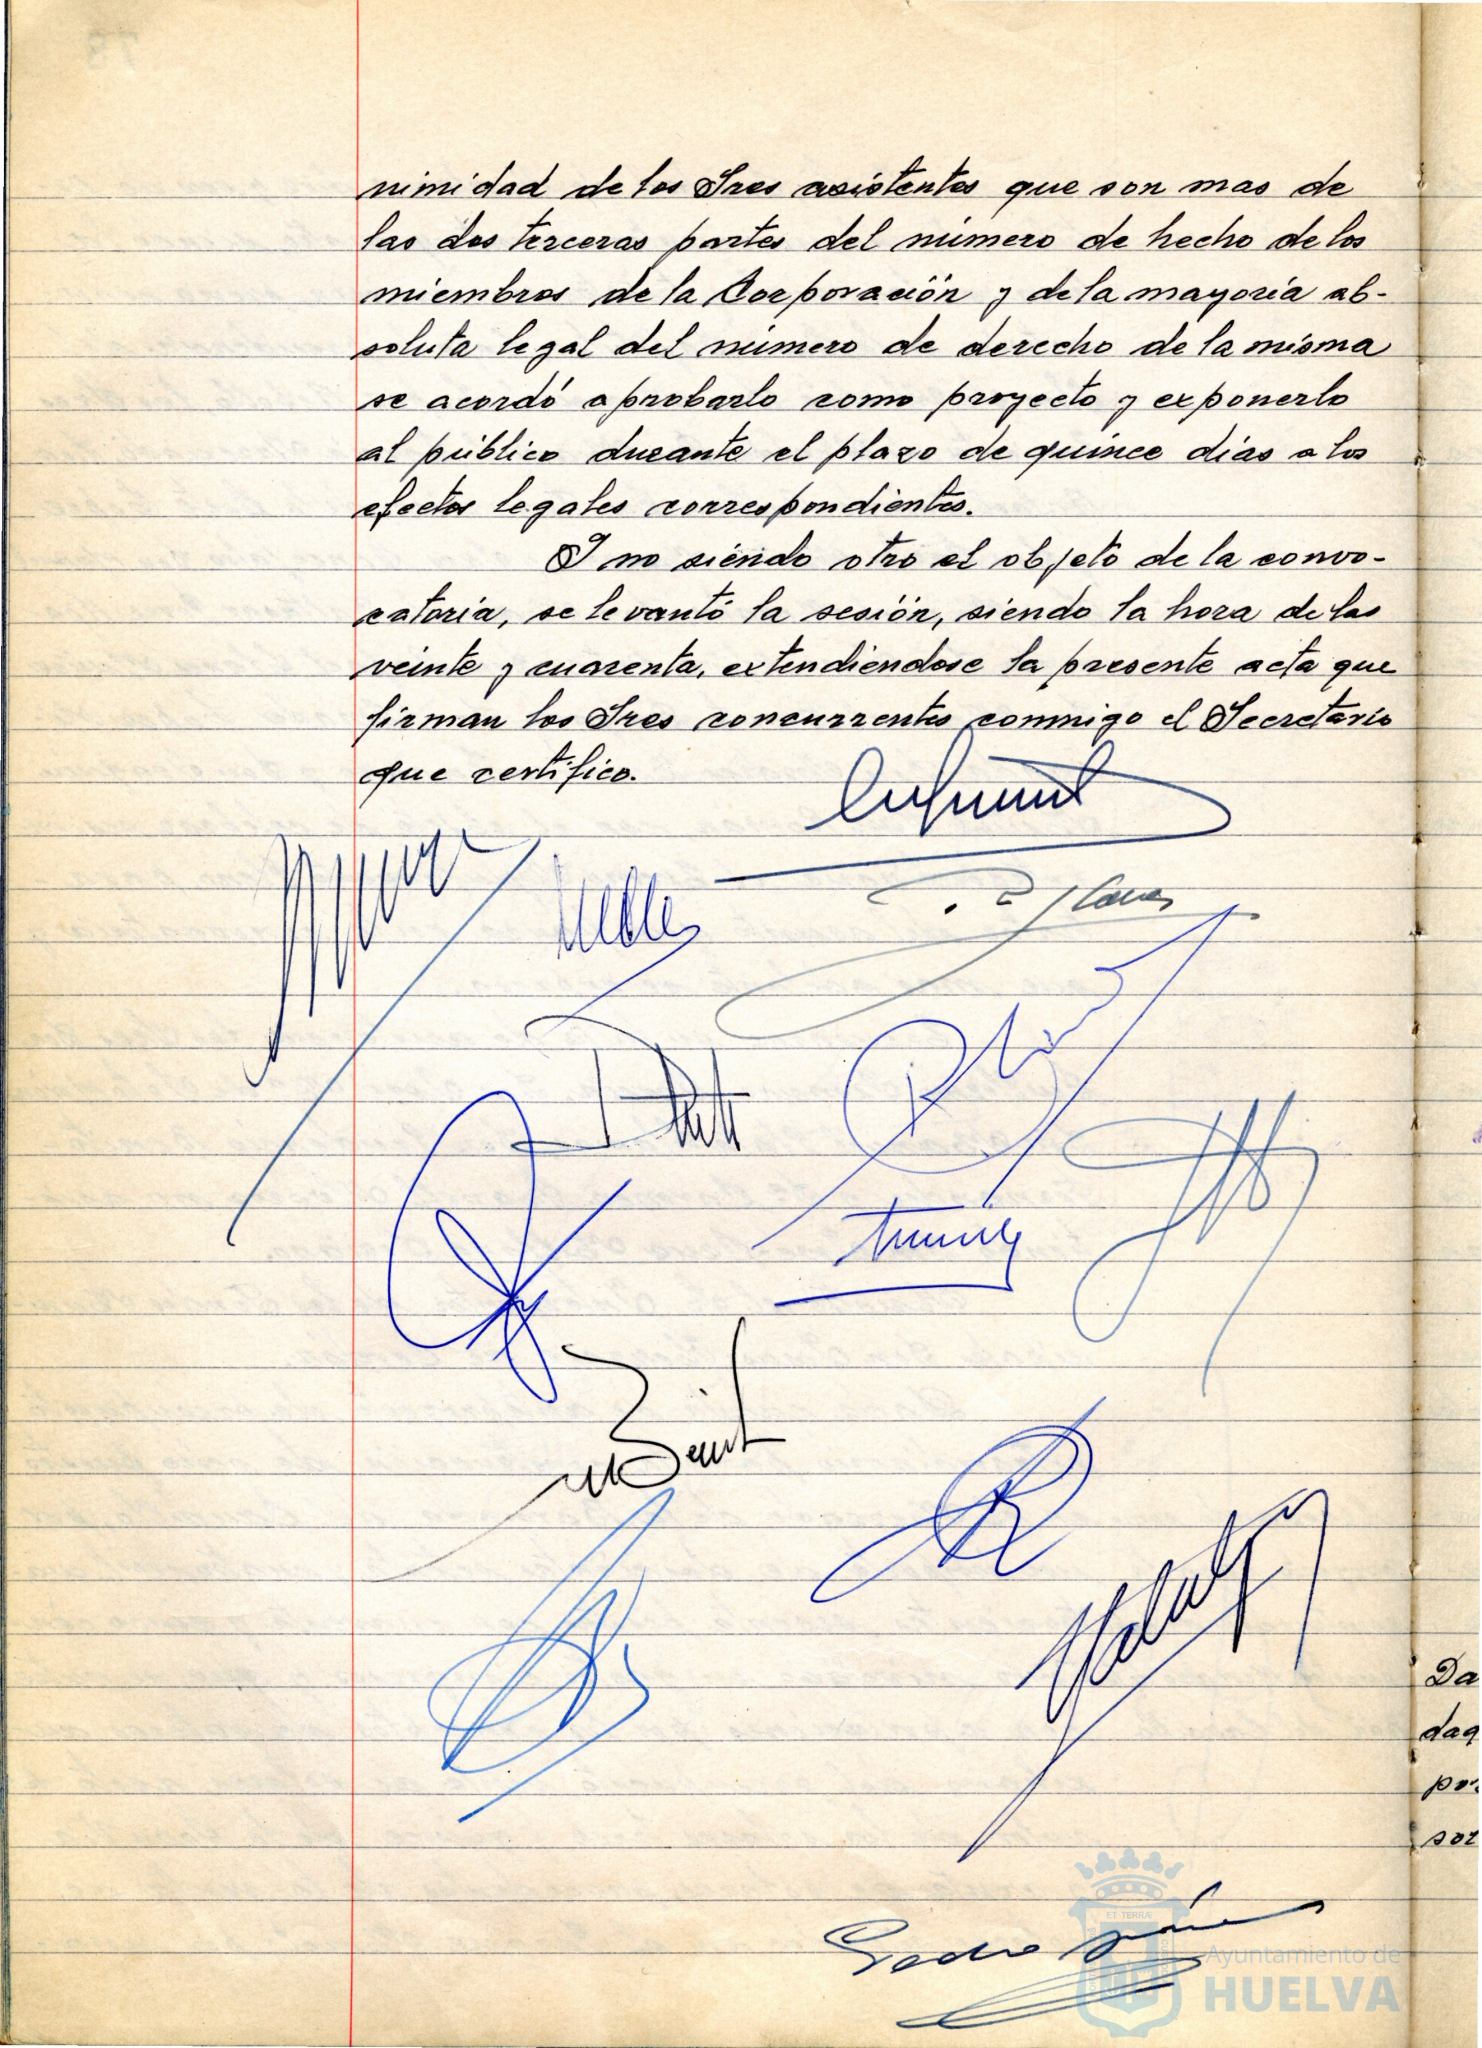 nimidad de los Sres asistentes que son mas de
las dos terceras partes del número de hecho de los
miembros de la Corporación y de la mayoría ab-
soluta legal del número de derecho de la misma
se acordó aprobarlo como proyecto y exponerlo
al público durante el plazo de quince dias a los
efectos legales correspondientes.
Y no siendo otro el objeto de la convo-
catoria, se levantó la sesión, siendo la hora de las
veinte y cuarenta, extendiendose la presente acta que
firman los Sres concurrentes conmigo el Secretario
que certifico.
Da
daq
por
sor
Pedro
ET TERRA
Ayuntamiento de
HUELVA